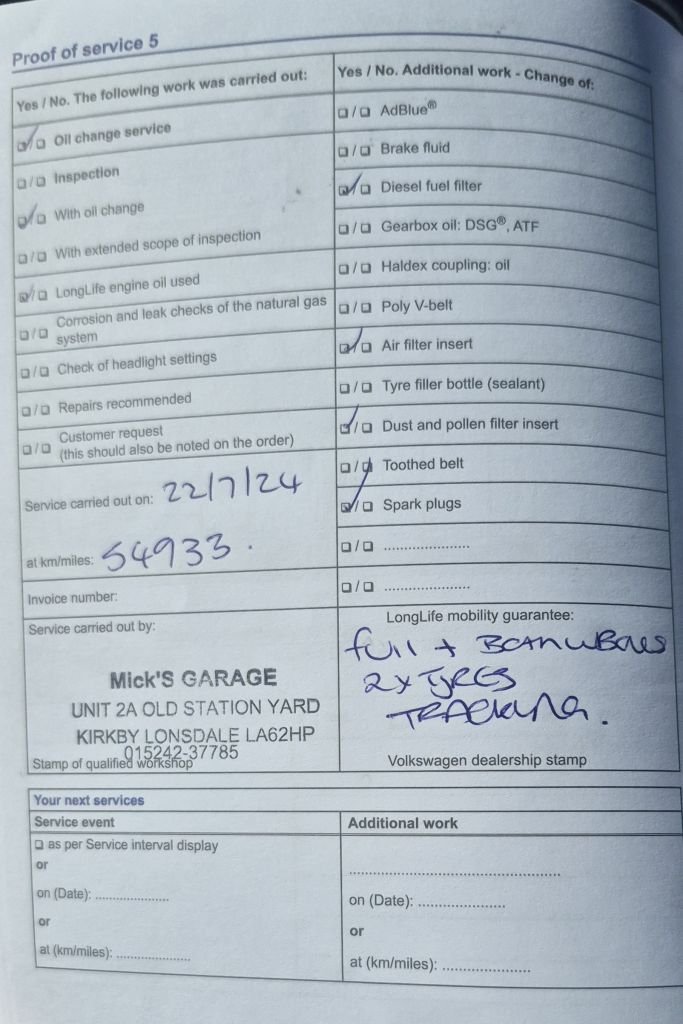 Proof of service 5
Yes / No. The following work was carried out:
☑/☐ Oil change service
☐/☐ Inspection
☑/☐ With oil change
☐/☐ With extended scope of inspection
☑/☐ LongLife engine oil used
☐/☐ Corrosion and leak checks of the natural gas
system
☐/☐ Check of headlight settings
☐/☐ Repairs recommended
☐/☐ Customer request
(this should also be noted on the order)
Service carried out on: 22/7/24
at km/miles: 54933.
Invoice number:
Service carried out by:
Mick'S GARAGE
UNIT 2A OLD STATION YARD
KIRKBY LONSDALE LA62HP
015242-37785
Stamp of qualified workshop
Yes / No. Additional work - Change of:
☐/☐ AdBlue®
☐/☐ Brake fluid
☑/☐ Diesel fuel filter
☐/☐ Gearbox oil: DSG®, ATF
☐/☐ Haldex coupling: oil
☐/☐ Poly V-belt
☑/☐ Air filter insert
☐/☐ Tyre filler bottle (sealant)
☑/☐ Dust and pollen filter insert
☐/☐ Toothed belt
☑/☐ Spark plugs
☐/☐ ......................
☐/☐ ......................
LongLife mobility guarantee:
full +
2x TYRES
TRACKING.
Volkswagen dealership stamp
Your next services
Service event
☐ as per Service interval display
or
on (Date): ...................
or
at (km/miles): ...................
Additional work
.......................................................
on (Date): ......................
or
at (km/miles): ......................